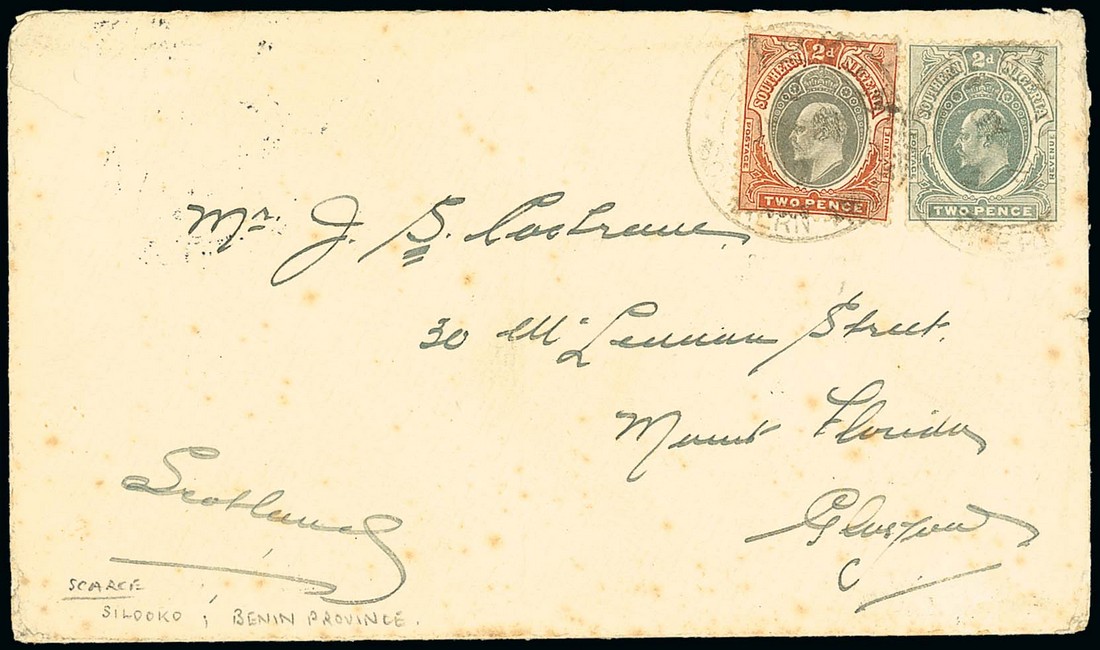 SOUTHERN NIGERIA
2d
POSTAGE
REVENUE
TWO PENCE
SOUTHERN NIGERIA
2d
POSTAGE
REVENUE
TWO PENCE
Mr. J. S.
30 McLennan Street.
Mount Florida
Glasgow
C
Scotland
SCARCE
SILOOKO ; BENIN PROVINCE.